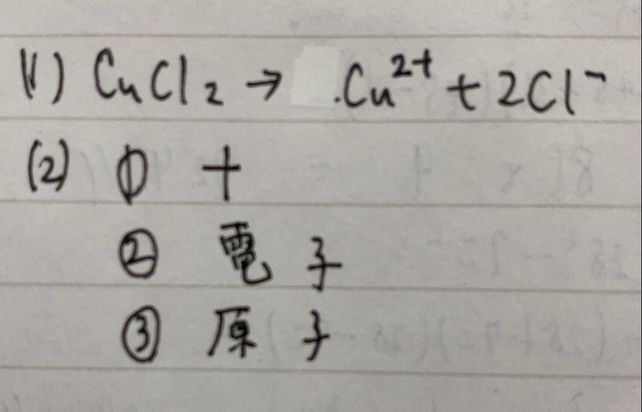 (1) CuCl₂ → Cu²⁺ + 2Cl⁻
(2) ① +
② 電子
③ 原子